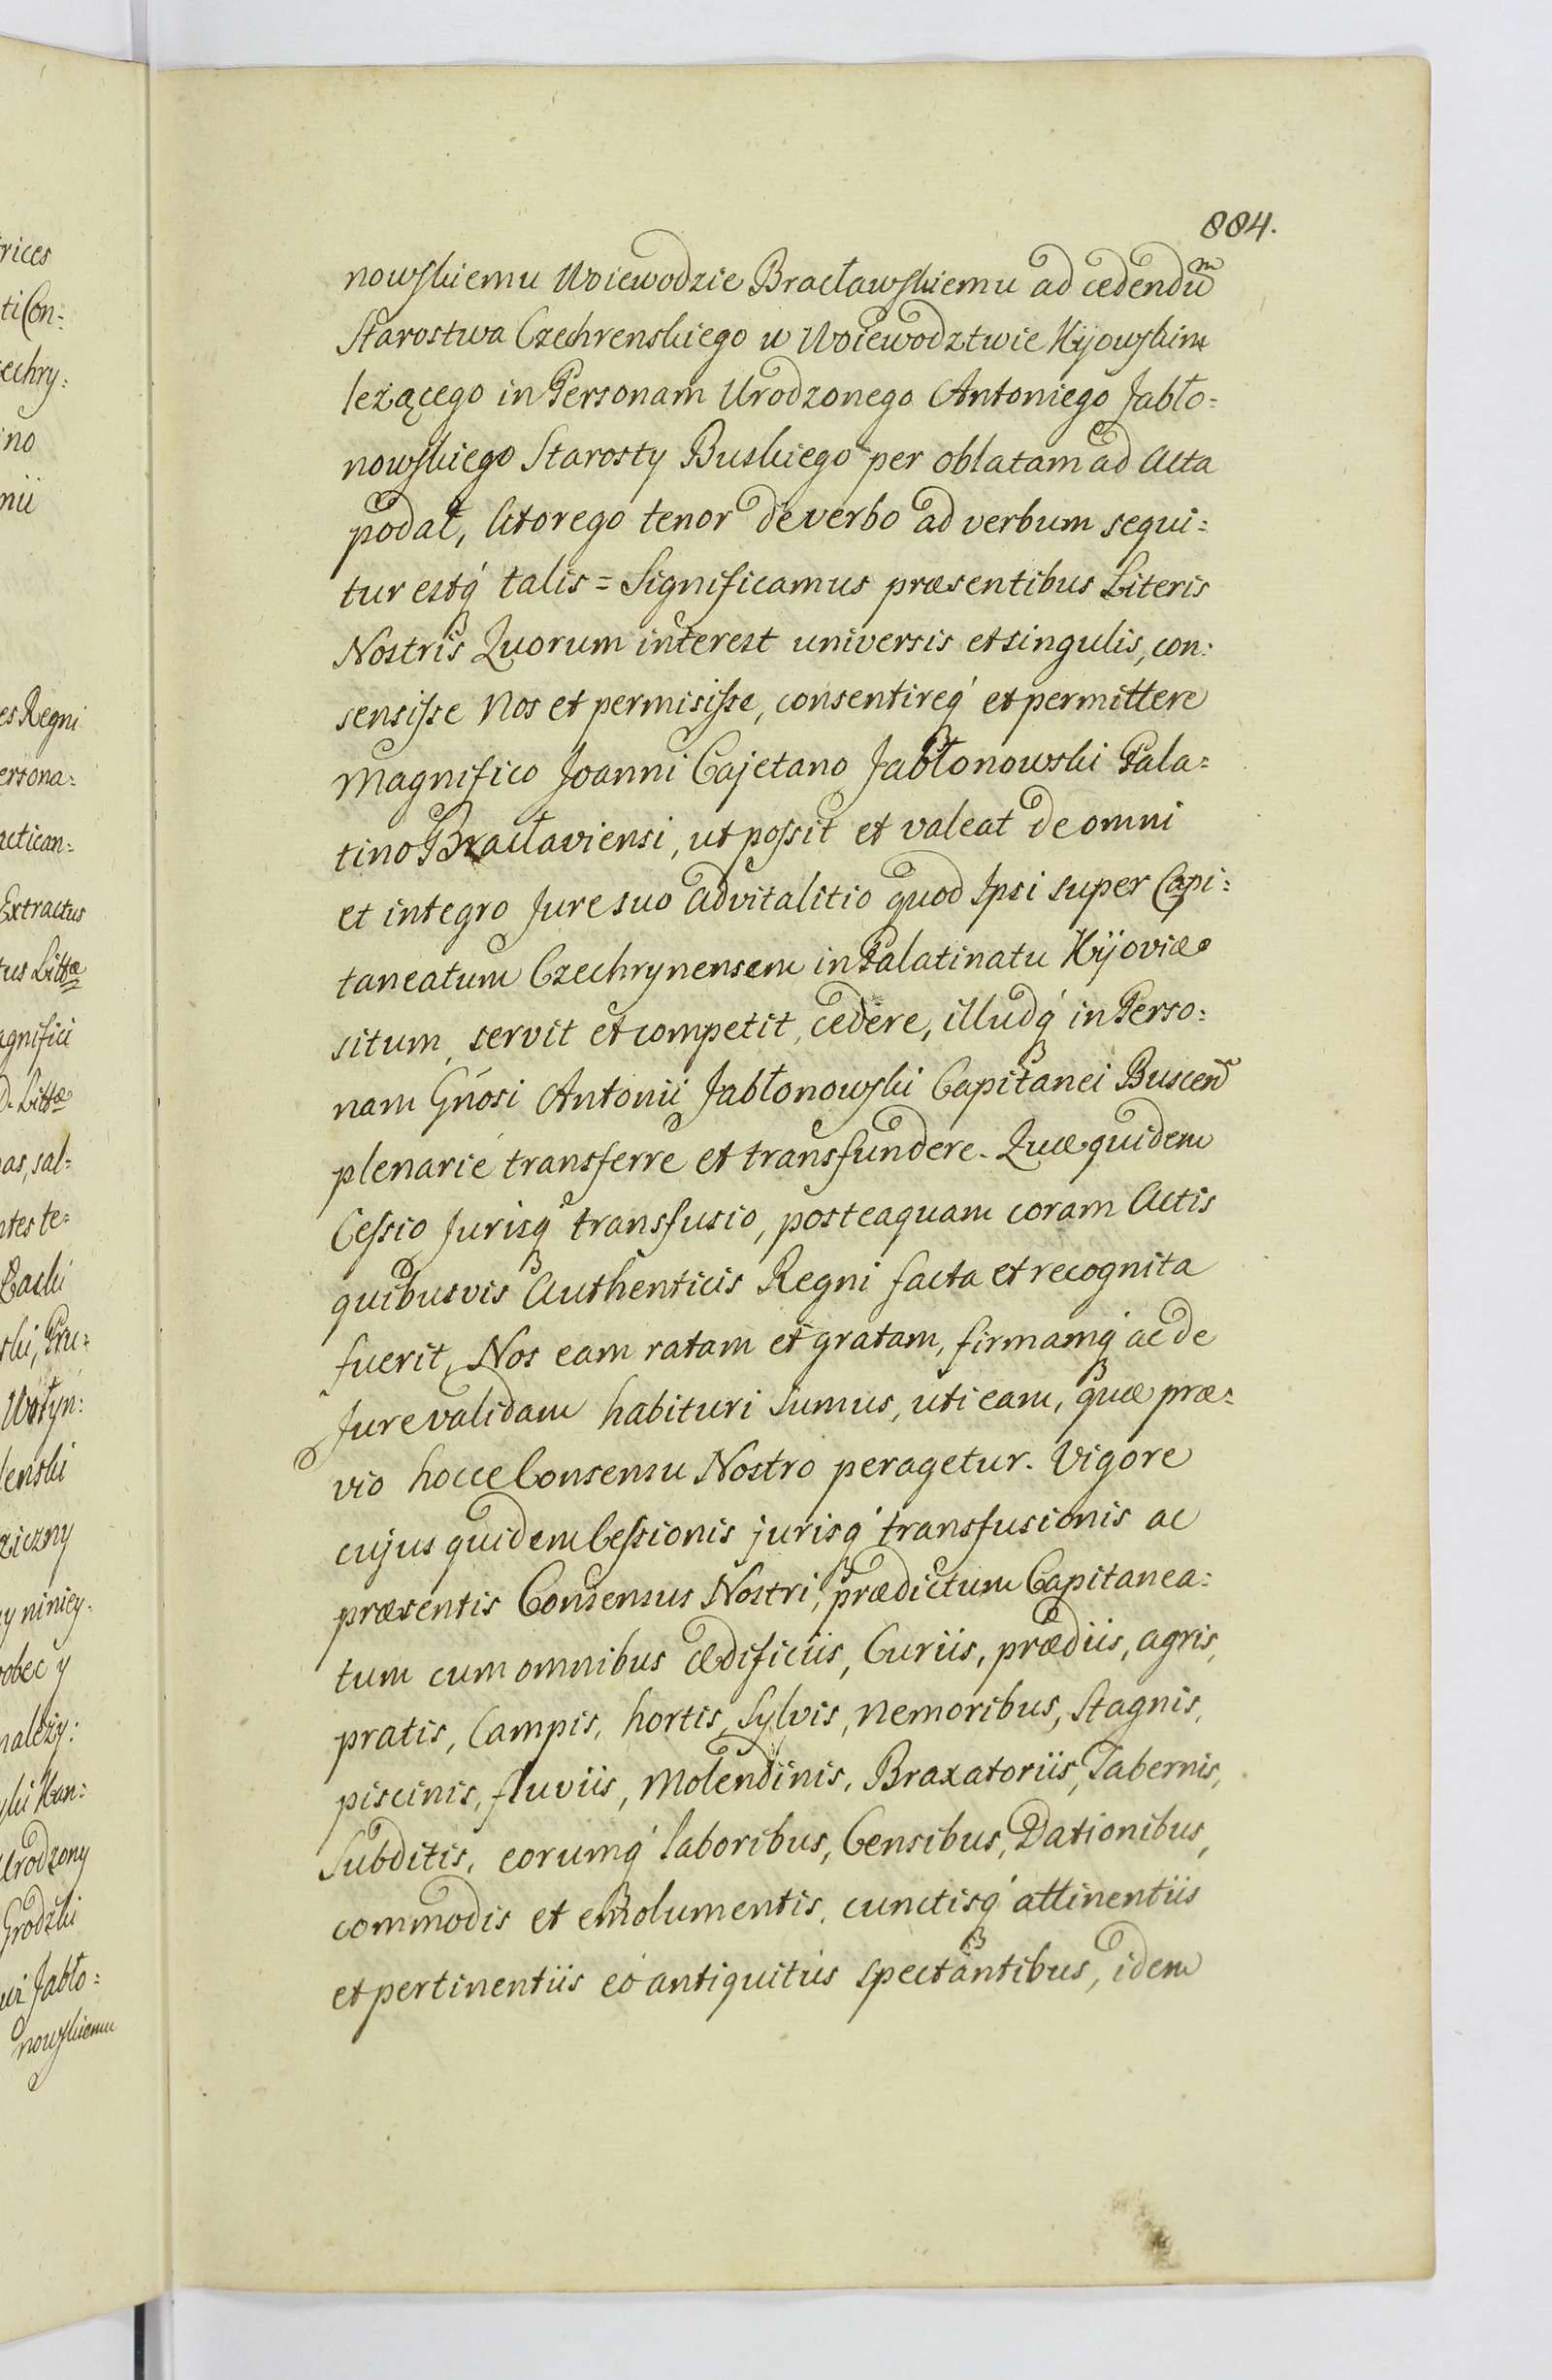 rices
ti Con=
echry=
no
nii
es Regni
ersona=
actican=
Extractus
tus Littæ
agnifici
D. Littæ
as, sal=
ntes te=
Packi
ski, Pru=
Wołyn=
enski
ziczny
y niniey=
obec y
należy=
ski Kan=
Urodzony
Grodzki
wi Jabło=
nowskiemu
884.
nowskiemu Woiewodzie Bracławskiemu ad cedendũm
Starostwa Czechrenskiego w Woiewodztwie Kijowskim
leżącego in Personam Urodzonego Antoniego Jabło=
nowskiego Starosty Buskiego per oblatam ad Acta
podał, ktorego tenor de verbo ad verbum sequi=
tur estq́ talis = Significamus præsentibus Literis
Nostris Quorum interest universis et singulis, con=
sensisse Nos et permisisse, consentireq́ et permittere
Magnifico Joanni Cajetano Jabłonowski Pala=
tino Bracłaviensi, ut possit et valeat de omni
et integro Jure suo advitalitio quod Ipsi super Capi=
taneatum Czechrynensem in Palatinatu Kijoviæ
situm, servit et competit, cedere, illudq́ in Perso=
nam Gńosi Antonii Jabłonowski Capitanei Buscen̄
plenarié transferre et transfundere. Quæ quidem
Cessio Jurisq́ transfusio, posteaquam coram Actis
quibusvis Authenticis Regni facta et recognita
fuerit, Nos eam ratam et gratam, firmamq́ ac de
Jure validam habituri sumus, uti eam, quæ præ=
vio hocce Consensu Nostro peragetur. Vigore
cujus quidem Cessionis jurisq́ transfusionis ac
præsentis Consensus Nostri, prædictum Capitanea=
tum cum omnibus ædificiis, Curiis, prædiis, agris,
pratis, Campis, hortis, Sylvis, nemoribus, Stagnis,
piscinis, fluviis, Molendinis, Braxatoriis, Tabernis,
Subditis, eorumq́ laboribus, Censibus, Dationibus,
commodis et emolumentis, cunctisq́ attinentiis
et pertinentiis eó antiquitús spectantibus, idem